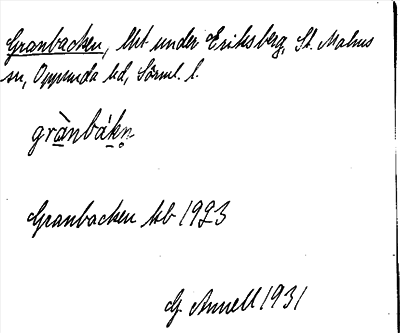 Granbacken, lht under Eriksberg, St. Malms
sn, Oppunda hd, Sörml. l.
grànbákn̥
Granbacken kb 1923
G. Annell 1931